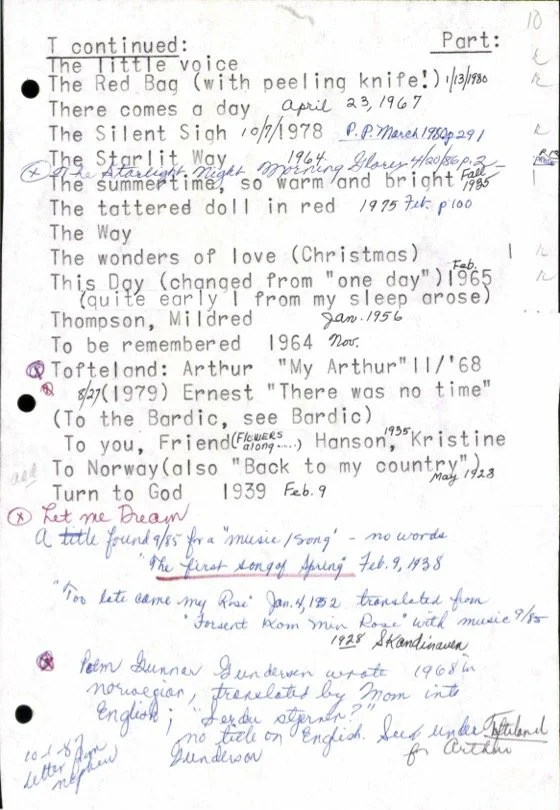 10
T continued: Part:
The little voice
The Red Bag (with peeling knife!) 1/13/1980
There comes a day April 23, 1967
The Silent Sigh 10/7/1978 P.P. March 1980 p 291
The Starlit Way 1964
(x) The Starlight Night Morning Glory 4/20/86 p. 2
The summertime, so warm and bright Fall 1985
The tattered doll in red 1975 Feb. p 100
The Way
The wonders of love (Christmas) 1
This Day (changed from "one day") Feb. 1965
(quite early I from my sleep arose)
Thompson, Mildred Jan. 1956
To be remembered 1964 Nov.
(x) Tofteland: Arthur "My Arthur" 11/'68
8/27 (1979) Ernest "There was no time"
(To the Bardic, see Bardic)
To you, Friend (Flowers along.....) Hanson, 1935 Kristine
add To Norway (also "Back to my country") May 1928
Turn to God 1939 Feb. 9
(x) Let me Dream
A title found 9/85 for a "music / song" - no words
"The first song of Spring" Feb. 9, 1938
"Too late came my Rose" Jan. 4, 1952 translated from
"Forsent Kom Min Rose" with music 9/85
1928 Skandinaven
Poem Gunnar Gundersen wrote 1968 in
norwegian, translated by Mom into
English; "Serdu stjernen?"
no title on English. Seek under Tofteland
for Arthur
letter from
nephew
Gunderson